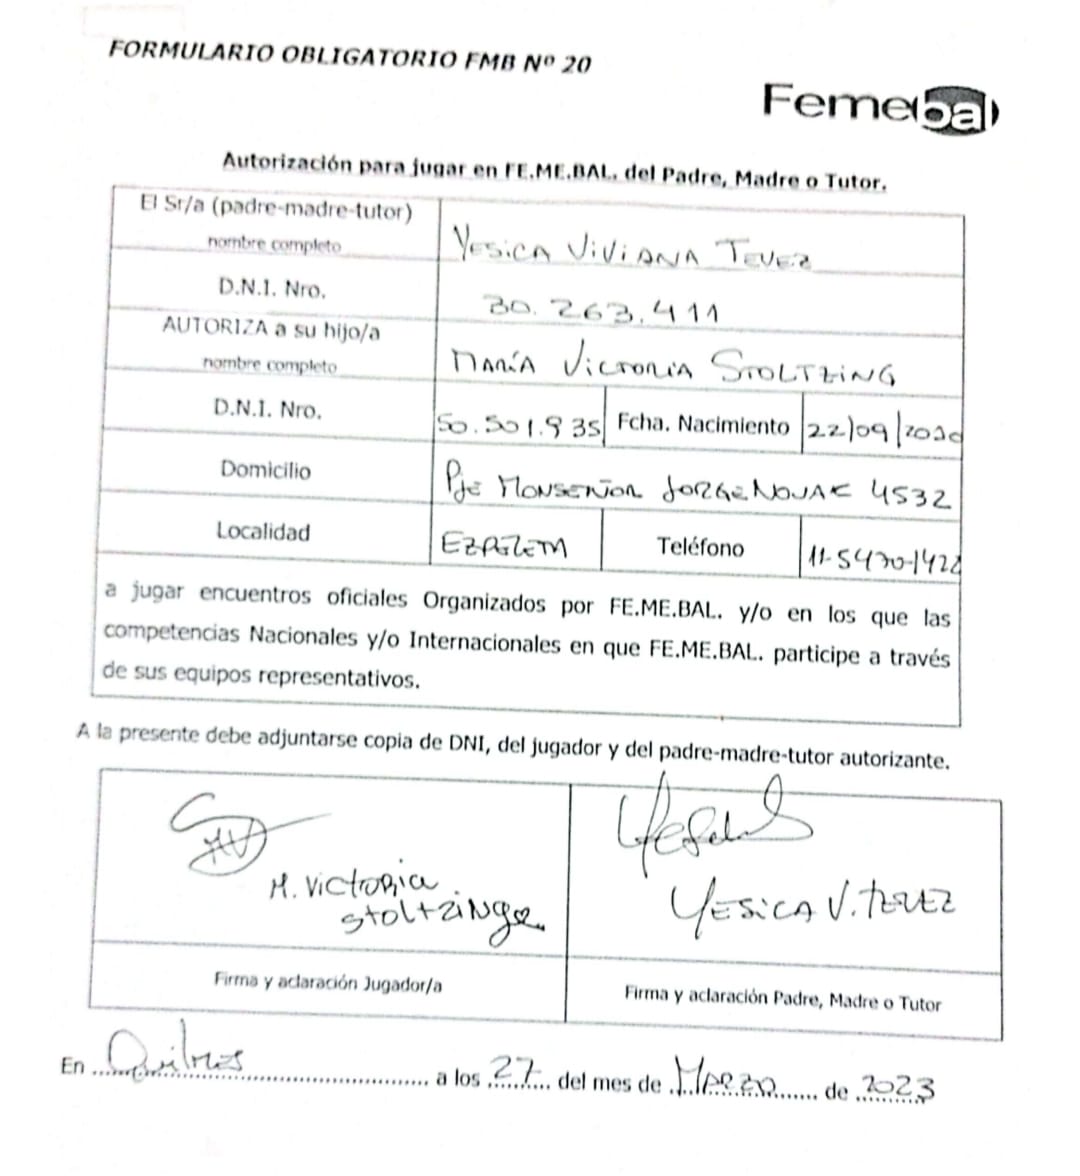 FORMULARIO OBLIGATORIO FMB Nº 20
Femebal
Autorización para jugar en FE.ME.BAL. del Padre, Madre o Tutor.
El Sr/a (padre-madre-tutor)
nombre completo
YESICA VIVIANA TEVEZ
D.N.I. Nro.
30.263.411
AUTORIZA a su hijo/a
nombre completo
MARÍA VICTORIA STOLTZING
D.N.I. Nro.
50.501.935
Fcha. Nacimiento
22/09/2010
Domicilio
PJE MONSEÑOR JORGE NOVAK 4532
Localidad
EZPELETA
Teléfono
11-5470-1422
a jugar encuentros oficiales Organizados por FE.ME.BAL. y/o en los que las
competencias Nacionales y/o Internacionales en que FE.ME.BAL. participe a través
de sus equipos representativos.
A la presente debe adjuntarse copia de DNI, del jugador y del padre-madre-tutor autorizante.
M. Victoria
Stoltzing
YESICA V. TEVEZ
Firma y aclaración Jugador/a
Firma y aclaración Padre, Madre o Tutor
En Quilmes a los 27 del mes de MARZO de 2023